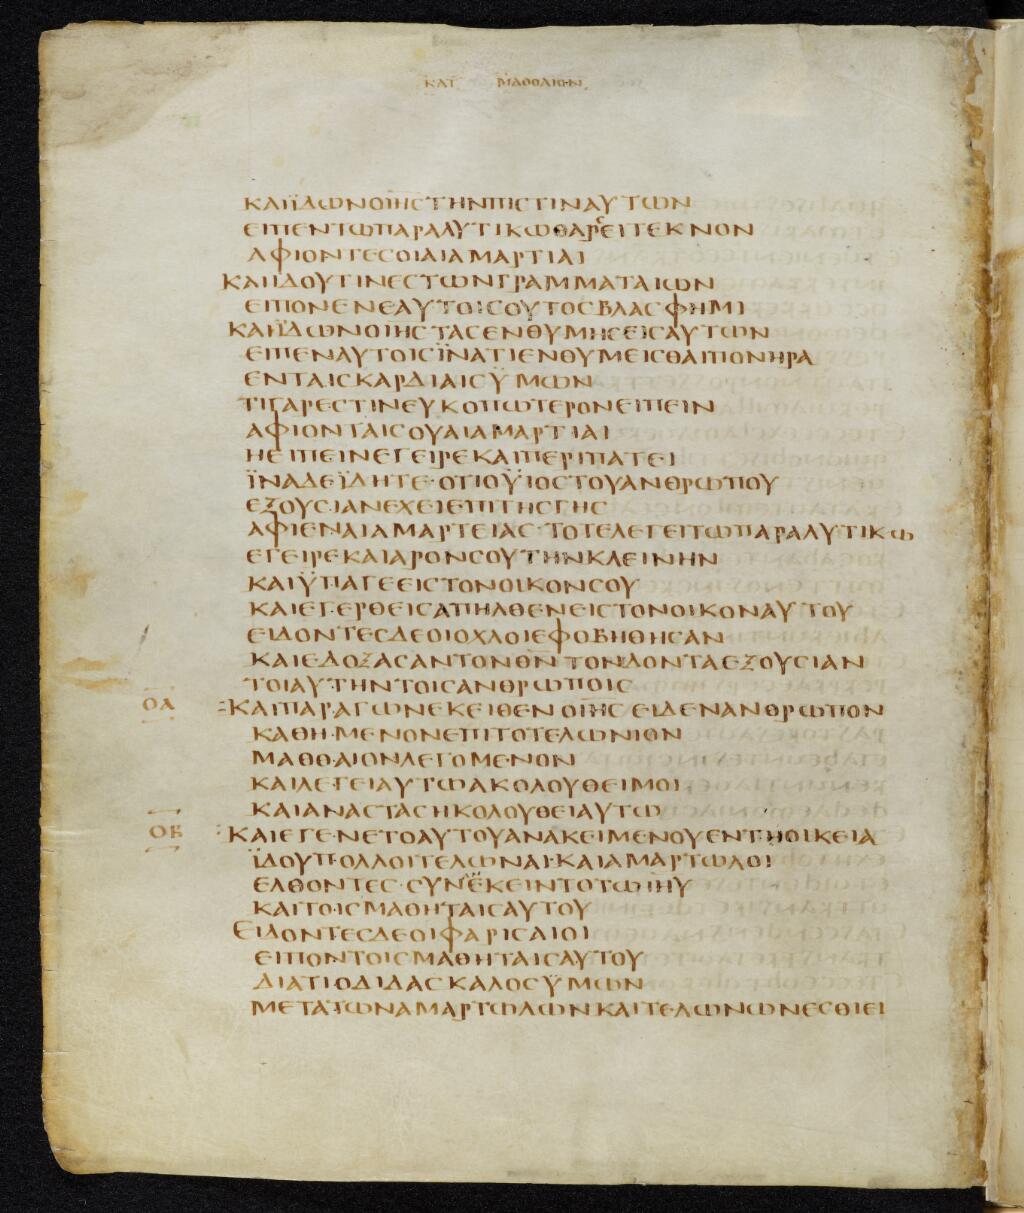 ΚΑΤ ΜΑΘΘΑΙΟΝ
ΚΑΙΪΔΩΝΟΙΗΣΤΗΝΠΙΣΤΙΝΑΥΤΩΝ
ΕΙΠΕΝΤΩΠΑΡΑΛΥΤΙΚΩΘΑΡΣΕΙΤΕΚΝΟΝ
ΑΦΙΟΝΤΕΣΟΙΑΙΑΜΑΡΤΙΑΙ
ΚΑΙΙΔΟΥΤΙΝΕΣΤΩΝΓΡΑΜΜΑΤΑΙΩΝ
ΕΙΠΟΝΕΝΕΑΥΤΟΙΣΟΥΤΟΣΒΛΑΣΦΗΜΙ
ΚΑΙΪΔΩΝΟΙΗΣΤΑΣΕΝΘΥΜΗΣΕΙΣΑΥΤΩΝ
ΕΙΠΕΝΑΥΤΟΙΣΪΝΑΤΙΕΝΘΥΜΕΙΣΘΑΙΠΟΝΗΡΑ
ΕΝΤΑΙΣΚΑΡΔΙΑΙΣΫΜΩΝ
ΤΙΓΑΡΕΣΤΙΝΕΥΚΟΠΩΤΕΡΟΝΕΙΠΕΙΝ
ΑΦΙΟΝΤΑΙΣΟΥΑΙΑΜΑΡΤΙΑΙ
ΗΕΙΠΕΙΝΕΓΕΙΡΕΚΑΙΠΕΡΙΠΑΤΕΙ
ΪΝΑΔΕΪΔΗΤΕ·ΟΤΙΟΫΙΟΣΤΟΥΑΝΘΡΩΠΟΥ
ΕΞΟΥΣΙΑΝΕΧΕΙΕΠΙΤΗΣΓΗΣ
ΑΦΙΕΝΑΙΑΜΑΡΤΕΙΑΣ·ΤΟΤΕΛΕΓΕΙΤΩΠΑΡΑΛΥΤΙΚΩ
ΕΓΕΙΡΕΚΑΙΑΡΟΝΣΟΥΤΗΝΚΛΕΙΝΗΝ
ΚΑΙΫΠΑΓΕΕΙΣΤΟΝΟΙΚΟΝΣΟΥ
ΚΑΙΕΓΕΡΘΕΙΣΑΠΗΛΘΕΝΕΙΣΤΟΝΟΙΚΟΝΑΥΤΟΥ
ΕΙΔΟΝΤΕΣΔΕΟΙΟΧΛΟΙΕΦΟΒΗΘΗΣΑΝ
ΚΑΙΕΔΟΞΑΣΑΝΤΟΝΘΝ ΤΟΝΔΟΝΤΑΕΞΟΥΣΙΑΝ
ΤΟΙΑΥΤΗΝΤΟΙΣΑΝΘΡΩΠΟΙΣ
ΟΑ :ΚΑΙΠΑΡΑΓΩΝΕΚΕΙΘΕΝΟΙΗΣΕΙΔΕΝΑΝΘΡΩΠΟΝ
ΚΑΘΗΜΕΝΟΝΕΠΙΤΟΤΕΛΩΝΙΟΝ
ΜΑΘΘΑΙΟΝΛΕΓΟΜΕΝΟΝ
ΚΑΙΛΕΓΕΙΑΥΤΩΑΚΟΛΟΥΘΕΙΜΟΙ
ΚΑΙΑΝΑΣΤΑΣΗΚΟΛΟΥΘΕΙΑΥΤΩ
ΟΒ :ΚΑΙΕΓΕΝΕΤΟΑΥΤΟΥΑΝΑΚΕΙΜΕΝΟΥΕΝΤΗΟΙΚΕΙΑ
ΪΔΟΥΠΟΛΛΟΙΤΕΛΩΝΑΙ·ΚΑΙΑΜΑΡΤΩΛΟΙ
ΕΛΘΟΝΤΕΣ·ΣΥΝΕΚΕΙΝΤΟΤΩΙΗΥ
ΚΑΙΤΟΙΣΜΑΘΗΤΑΙΣΑΥΤΟΥ
ΕΙΔΟΝΤΕΣΔΕΟΙΦΑΡΙΣΑΙΟΙ
ΕΙΠΟΝΤΟΙΣΜΑΘΗΤΑΙΣΑΥΤΟΥ
ΔΙΑΤΙΟΔΙΔΑΣΚΑΛΟΣΫΜΩΝ
ΜΕΤΑΤΩΝΑΜΑΡΤΩΛΩΝΚΑΙΤΕΛΩΝΩΝΕΣΘΙΕΙ